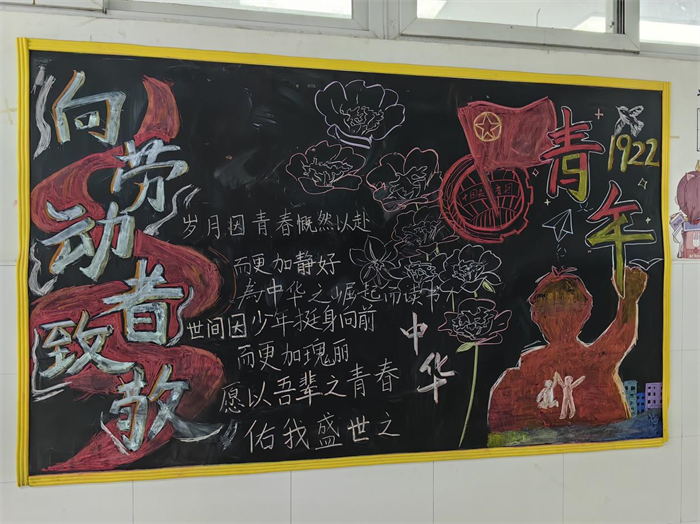 向劳动者致敬
岁月因青春慨然以赴
而更加静好
为中华之崛起而读书
世间因少年挺身向前
而更加瑰丽
愿以吾辈之青春
佑我盛世之
中华
青年
1922